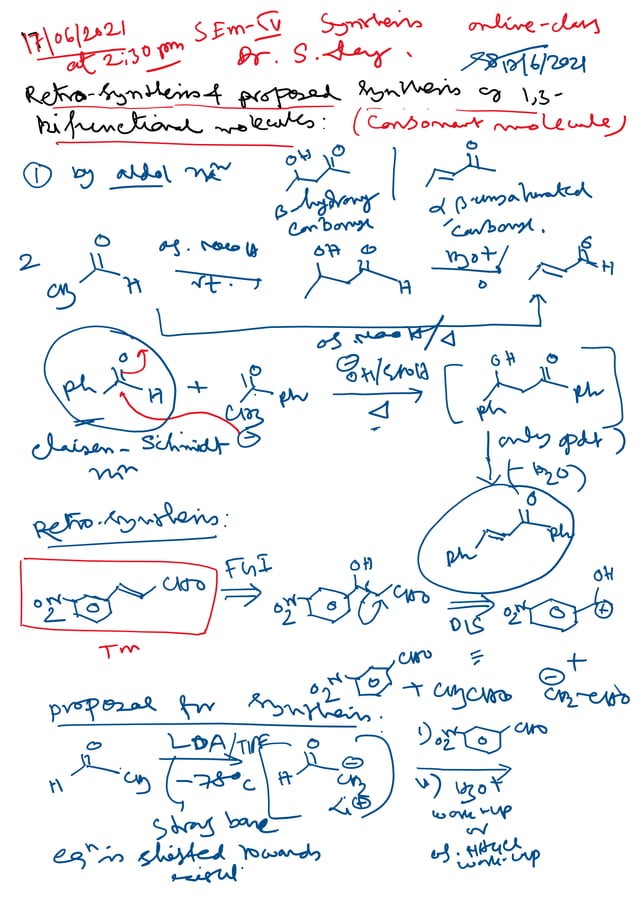 17/06/2021 SEm-IV Synthesis online-class
at 2:30 pm Dr. S. Dey. 18/6/2021
Retro-synthesis & proposed synthesis of 1,3-
bifunctional molecules: (Consonant molecule)
① by aldol rxn OH O O
β-hydroxy carbonyl α,β-unsaturated carbonyl.
2 CH3 O H aq. NaOH rt. OH O H H3O+/ O H
aq NaOH/Δ
Ph O H + O CH3 Ph ⊖OH/EtOH Δ OH O Ph Ph
Claisen-Schmidt rxn
only pdt
(-H2O)
O Ph Ph
Retro-synthesis:
O2N CHO FGI OH O2N CHO DIS OH O2N ⊕
TM
≡ +
O2N CHO + CH3CHO ⊖CH2-CHO
proposal for synthesis:
H O CH3 LDA/THF -78°C O H ⊖CH2 Li⊕ i) O2N CHO
ii) H3O+
work-up
or
aq. NH4Cl
work-up
Strong base
eqn is shifted towards
right.